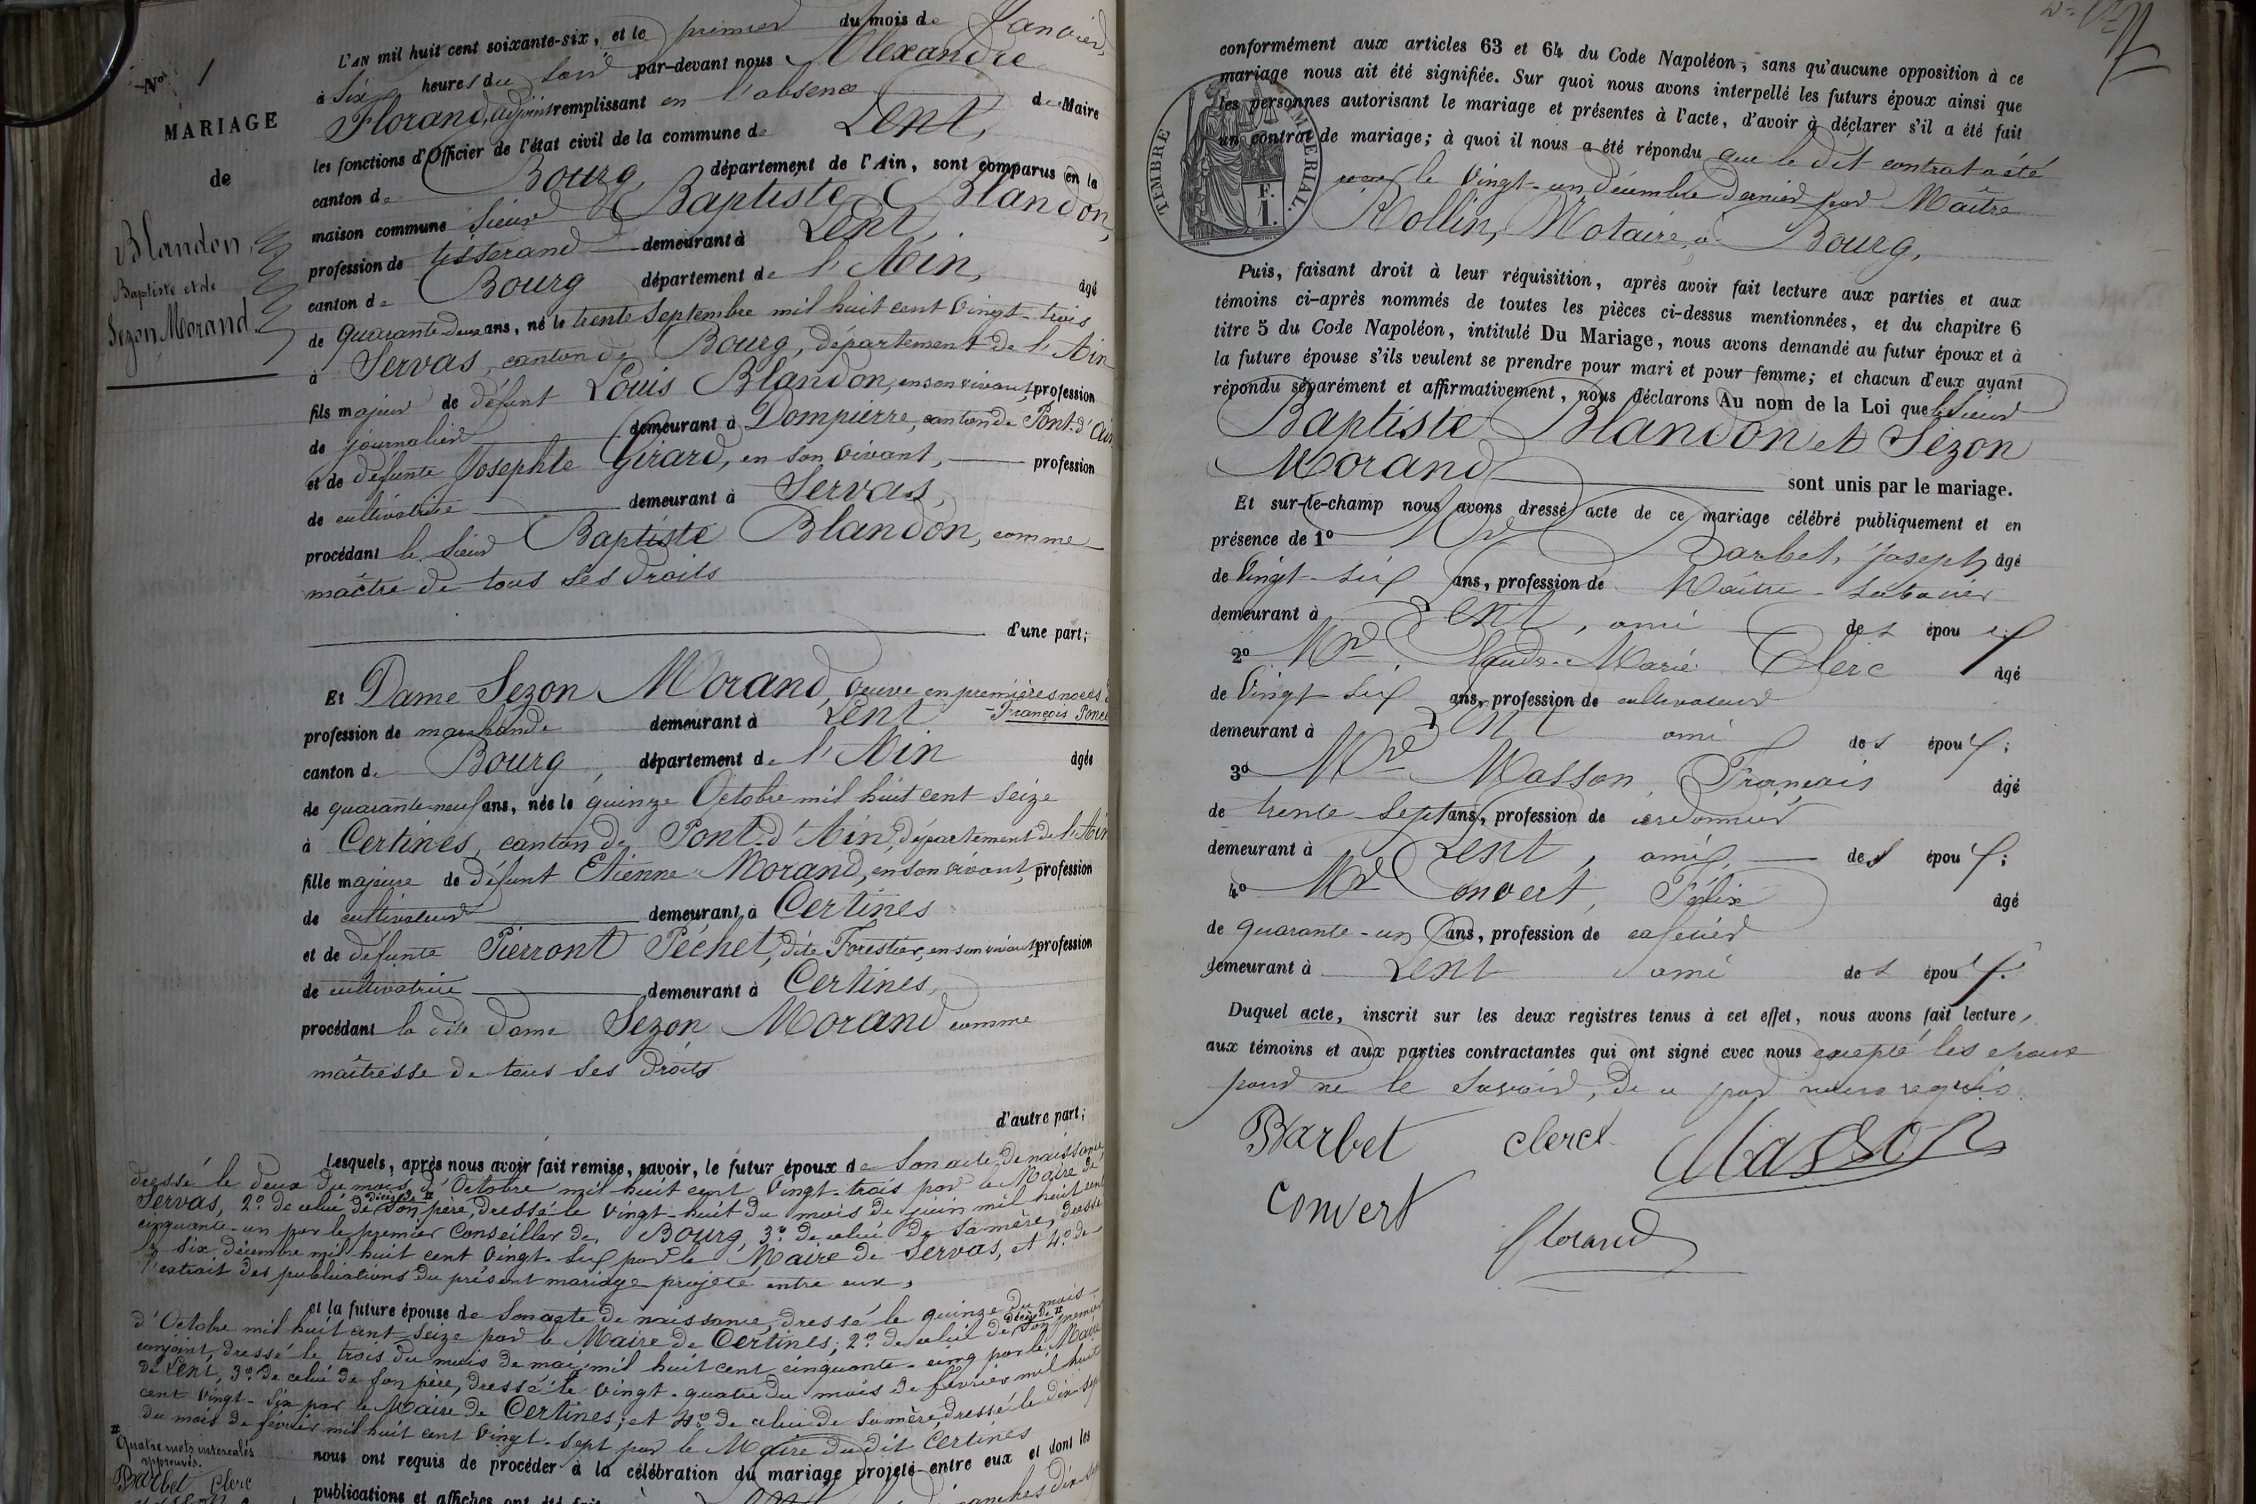 Nos 1
MARIAGE
de
Blandon
Baptiste et de
Sezon Morand
L'AN mil huit cent soixante-six, et le premier du mois de Janvier,
à six heures du soir par-devant nous Alexandre
Florand, adjoint remplissant en l'absence de Maire
les fonctions d'Officier de l'état civil de la commune de Lent,
canton de Bourg, département de l'Ain, sont comparus en la
maison commune Sieur Baptiste Blandon,
profession de tisserand demeurant à Lent,
canton de Bourg département de l'Ain, âgé
de quarante-deux ans, né le trente Septembre mil huit cent vingt-trois
à Servas, canton de Bourg, département de l'Ain
fils majeur de défunt Louis Blandon, en son vivant, profession
de journalier demeurant à Dompierre, canton de Pont-d'Ain
et de défunte Josephte Girard, en son vivant, profession
de cultivatrice demeurant à Servas,
procédant le Sieur Baptiste Blandon, comme
maître de tous ses droits
d'une part;
Et Dame Sezon Morand, veuve en premières noces
- François Poncet
profession de marchande demeurant à Lent
canton de Bourg, département de l'Ain âgée
de quarante-neuf ans, née le quinze Octobre mil huit cent seize
à Certines, canton de Pont-d'Ain, département de l'Ain
fille majeure de défunt Etienne Morand, en son vivant, profession
de cultivateur demeurant à Certines
et de défunte Pierront Péchet, dite Forestier, en son vivant, profession
de cultivatrice demeurant à Certines,
procédant la dite Dame Sezon Morand comme
maîtresse de tous ses droits
d'autre part;
Lesquels, après nous avoir fait remise, savoir, le futur époux de son acte de naissance
dressé le deux du mois d'Octobre mil huit cent vingt-trois par le Maire de
Servas, 2º de celui de décès de # son père, dressé le vingt-huit du mois de juin mil huit cent
cinquante-un par le premier Conseiller de Bourg, 3º de celui de sa mère, dressé
le six décembre mil huit cent vingt-six par le Maire de Servas, et 4º de
l'extrait des publications du présent mariage projeté entre eux,
et la future épouse de son acte de naissance, dressé le quinze du mois
d'Octobre mil huit cent seize par le Maire de Certines; 2º de celui de décès de # son premier
conjoint, dressé le trois du mois de mai mil huit cent cinquante-cinq par le Maire
de Lent, 3º de celui de son père, dressé le vingt-quatre du mois de février mil huit
cent vingt-six par le Maire de Certines; et 4º de celui de sa mère dressé le dix-sept
du mois de février mil huit cent vingt-sept par le Maire du dit Certines
# Quatre mots intercalés
approuvés.
Barbet Clerc
nous ont requis de procéder à la célébration du mariage projeté entre eux et dont les
publications et affiches ont été
conformément aux articles 63 et 64 du Code Napoléon, sans qu'aucune opposition à ce
mariage nous ait été signifiée. Sur quoi nous avons interpellé les futurs époux ainsi que
les personnes autorisant le mariage et présentes à l'acte, d'avoir à déclarer s'il a été fait
un contrat de mariage; à quoi il nous a été répondu que le dit contrat a été
le vingt-un décembre dernier par Maître
Rollin, Notaire, à Bourg,
TIMBRE IMPERIAL.
F.
1.
Puis, faisant droit à leur réquisition, après avoir fait lecture aux parties et aux
témoins ci-après nommés de toutes les pièces ci-dessus mentionnées, et du chapitre 6
titre 5 du Code Napoléon, intitulé Du Mariage, nous avons demandé au futur époux et à
la future épouse s'ils veulent se prendre pour mari et pour femme; et chacun d'eux ayant
répondu séparément et affirmativement, nous déclarons Au nom de la Loi que le Sieur
Baptiste Blandon et Sezon
Morand sont unis par le mariage.
Et sur-le-champ nous avons dressé acte de ce mariage célébré publiquement et en
présence de 1º Mr Barbet, Joseph, âgé
de vingt-six ans, profession de Maître-sabotier
demeurant à Lent, ami des époux
2º Mr Claude-Marie Clerc âgé
de vingt-six ans, profession de cultivateur
demeurant à Lent ami des époux;
3º Mr Masson, François âgé
de trente-sept ans, profession de cordonnier
demeurant à Lent, ami, des époux;
4º Mr Convert, Félix âgé
de quarante-un ans, profession de cafetier
demeurant à Lent ami des époux.
Duquel acte, inscrit sur les deux registres tenus à cet effet, nous avons fait lecture,
aux témoins et aux parties contractantes qui ont signé avec nous excepté les époux
pour ne le savoir, de ce par nous requis.
Barbet Clerc Masson
Convert
Florand